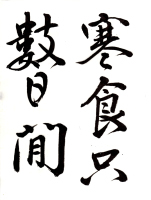 寒食只
數日間